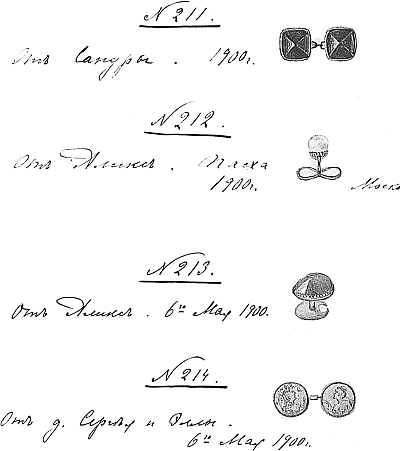 N 211.
Отъ Сандры. 1900г.
N 212.
Отъ Аликсъ. Пасха
1900г.
Моск
N 213.
Отъ Аликсъ. 6го Мая 1900.
N 214.
Отъ д. Сергѣя и Эллы.
6го Мая 1900г.